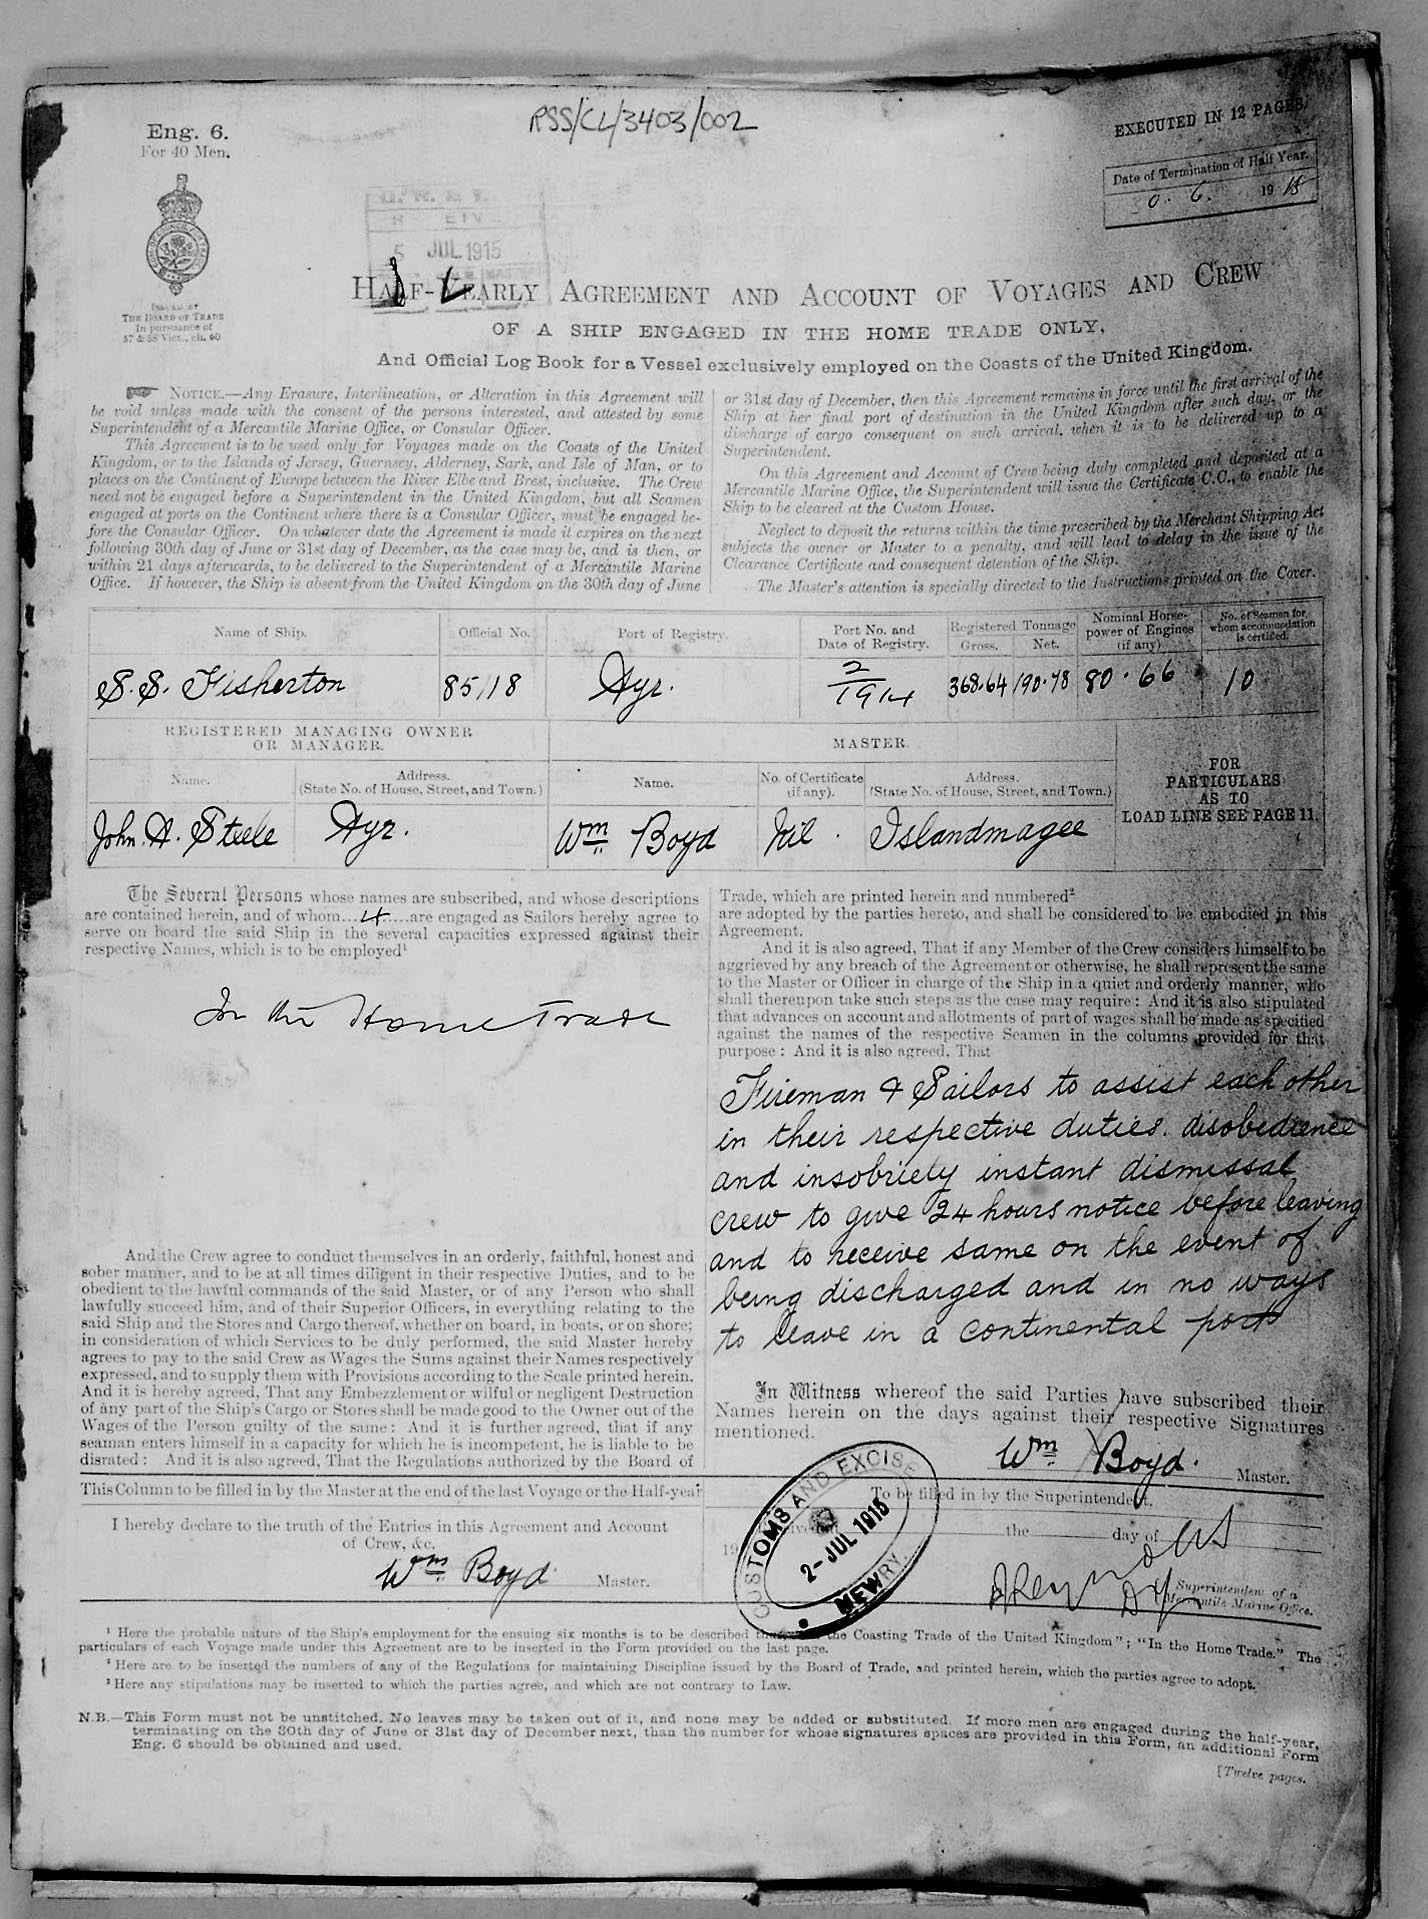 RSS/CL/3403/002
Eng. 6.
For 40 Men.
EXECUTED IN 12 PAGES.
Date of Termination of Half Year.
0. 6. 1915
ISSUED BY
THE BOARD OF TRADE
In pursuance of
57 & 58 Vict., ch. 60
5 JUL 1915
HALF-YEARLY AGREEMENT AND ACCOUNT OF VOYAGES AND CREW
OF A SHIP ENGAGED IN THE HOME TRADE ONLY,
And Official Log Book for a Vessel exclusively employed on the Coasts of the United Kingdom.
NOTICE.—Any Erasure, Interlineation, or Alteration in this Agreement will
be void unless made with the consent of the persons interested, and attested by some
Superintendent of a Mercantile Marine Office, or Consular Officer.
This Agreement is to be used only for Voyages made on the Coasts of the United
Kingdom, or to the Islands of Jersey, Guernsey, Alderney, Sark, and Isle of Man, or to
places on the Continent of Europe between the River Elbe and Brest, inclusive. The Crew
need not be engaged before a Superintendent in the United Kingdom, but all Seamen
engaged at ports on the Continent where there is a Consular Officer, must be engaged be-
fore the Consular Officer. On whatever date the Agreement is made it expires on the next
following 30th day of June or 31st day of December, as the case may be, and is then, or
within 21 days afterwards, to be delivered to the Superintendent of a Mercantile Marine
Office. If however, the Ship is absent from the United Kingdom on the 30th day of June
or 31st day of December, then this Agreement remains in force until the first arrival of the
Ship at her final port of destination in the United Kingdom after such day, or the
discharge of cargo consequent on such arrival, when it is to be delivered up to a
Superintendent.
On this Agreement and Account of Crew being duly completed and deposited at a
Mercantile Marine Office, the Superintendent will issue the Certificate C.C., to enable the
Ship to be cleared at the Custom House.
Neglect to deposit the returns within the time prescribed by the Merchant Shipping Act
subjects the owner or Master to a penalty, and will lead to delay in the issue of the
Clearance Certificate and consequent detention of the Ship.
The Master's attention is specially directed to the Instructions printed on the Cover.
Name of Ship. Official No. Port of Registry. Port No. and Date of Registry. Registered Tonnage Gross. Net. Nominal Horse-power of Engines (if any) No. of Seamen for whom accommodation is certified.
S.S. Fisherton 85118 Ayr. 2/1914 368.64 190.78 80.66 10
REGISTERED MANAGING OWNER
OR MANAGER.
MASTER.
Name. Address. (State No. of House, Street, and Town.) Name. No. of Certificate (if any). Address. (State No. of House, Street, and Town.)
FOR
PARTICULARS
AS TO
LOAD LINE SEE PAGE 11.
John. A. Steele Ayr. Wm Boyd Nil. Islandmagee
The Several Persons whose names are subscribed, and whose descriptions
are contained herein, and of whom...4...are engaged as Sailors hereby agree to
serve on board the said Ship in the several capacities expressed against their
respective Names, which is to be employed¹
In the Home Trade
And the Crew agree to conduct themselves in an orderly, faithful, honest and
sober manner, and to be at all times diligent in their respective Duties, and to be
obedient to the lawful commands of the said Master, or of any Person who shall
lawfully succeed him, and of their Superior Officers, in everything relating to the
said Ship and the Stores and Cargo thereof, whether on board, in boats, or on shore;
in consideration of which Services to be duly performed, the said Master hereby
agrees to pay to the said Crew as Wages the Sums against their Names respectively
expressed, and to supply them with Provisions according to the Scale printed herein.
And it is hereby agreed, That any Embezzlement or wilful or negligent Destruction
of any part of the Ship's Cargo or Stores shall be made good to the Owner out of the
Wages of the Person guilty of the same: And it is further agreed, that if any
seaman enters himself in a capacity for which he is incompetent, he is liable to be
disrated: And it is also agreed, That the Regulations authorized by the Board of
Trade, which are printed herein and numbered²
are adopted by the parties hereto, and shall be considered to be embodied in this
Agreement.
And it is also agreed, That if any Member of the Crew considers himself to be
aggrieved by any breach of the Agreement or otherwise, he shall represent the same
to the Master or Officer in charge of the Ship in a quiet and orderly manner, who
shall thereupon take such steps as the case may require: And it is also stipulated
that advances on account and allotments of part of wages shall be made as specified
against the names of the respective Seamen in the columns provided for that
purpose: And it is also agreed, That
Fireman & Sailors to assist each other
in their respective duties. disobedience
and insobriety instant dismissal
crew to give 24 hours notice before leaving
and to receive same on the event of
being discharged and in no ways
to leave in a continental port
In Witness whereof the said Parties have subscribed their
Names herein on the days against their respective Signatures
mentioned.
Wm Boyd. Master.
This Column to be filled in by the Master at the end of the last Voyage or the Half-year
I hereby declare to the truth of the Entries in this Agreement and Account
of Crew, &c.
Wm Boyd Master.
To be filled in by the Superintendent.
the day of
19
CUSTOMS AND EXCISE
2-JUL 1915
NEWRY.
Superintendent of a
Mercantile Marine Office.
¹ Here the probable nature of the Ship's employment for the ensuing six months is to be described the Coasting Trade of the United Kingdom"; "In the Home Trade." The
particulars of each Voyage made under this Agreement are to be inserted in the Form provided on the last page.
² Here are to be inserted the numbers of any of the Regulations for maintaining Discipline issued by the Board of Trade, and printed herein, which the parties agree to adopt.
³ Here any stipulations may be inserted to which the parties agree, and which are not contrary to Law.
N.B.—This Form must not be unstitched. No leaves may be taken out of it, and none may be added or substituted. If more men are engaged during the half-year,
terminating on the 30th day of June or 31st day of December next, than the number for whose signatures spaces are provided in this Form, an additional Form
Eng. 6 should be obtained and used.
[Twelve pages.